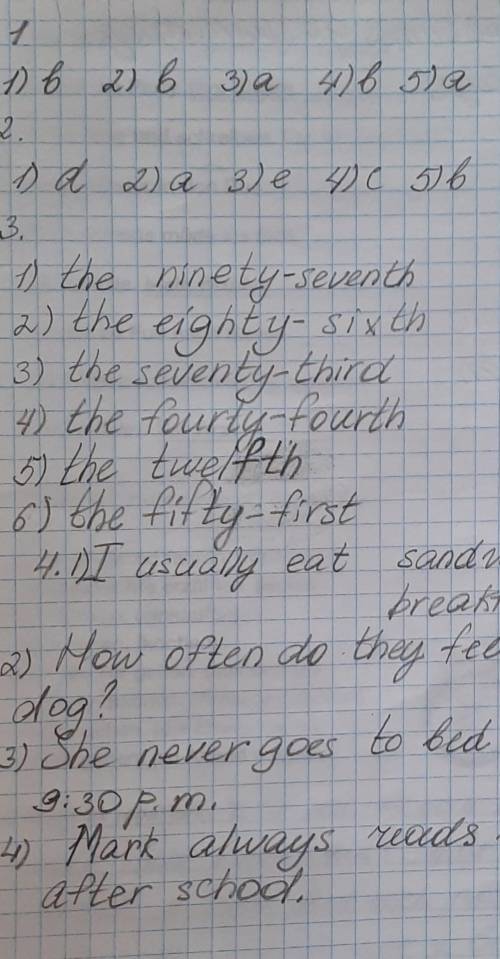 1
1) b 2) b 3) a 4) b 5) a
2.
1) d 2) a 3) e 4) c 5) b
3.
1) the ninety-seventh
2) the eighty-sixth
3) the seventy-third
4) the fourty-fourth
5) the twelfth
6) the fifty-first
4.1) I usually eat
2) How often do they
dog?
3) She never goes to bed
9:30 p.m.
4) Mark always reads
after school.